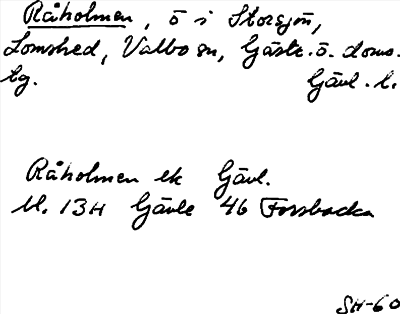 Råholmen, ö i Storsjön,
Lomshed, Valbo sn, Gästr. ö. doms.
tg. Gävl. l.
Råholmen ek Gävl.
Bl. 13H Gävle 46 Forsbacka
SH-60